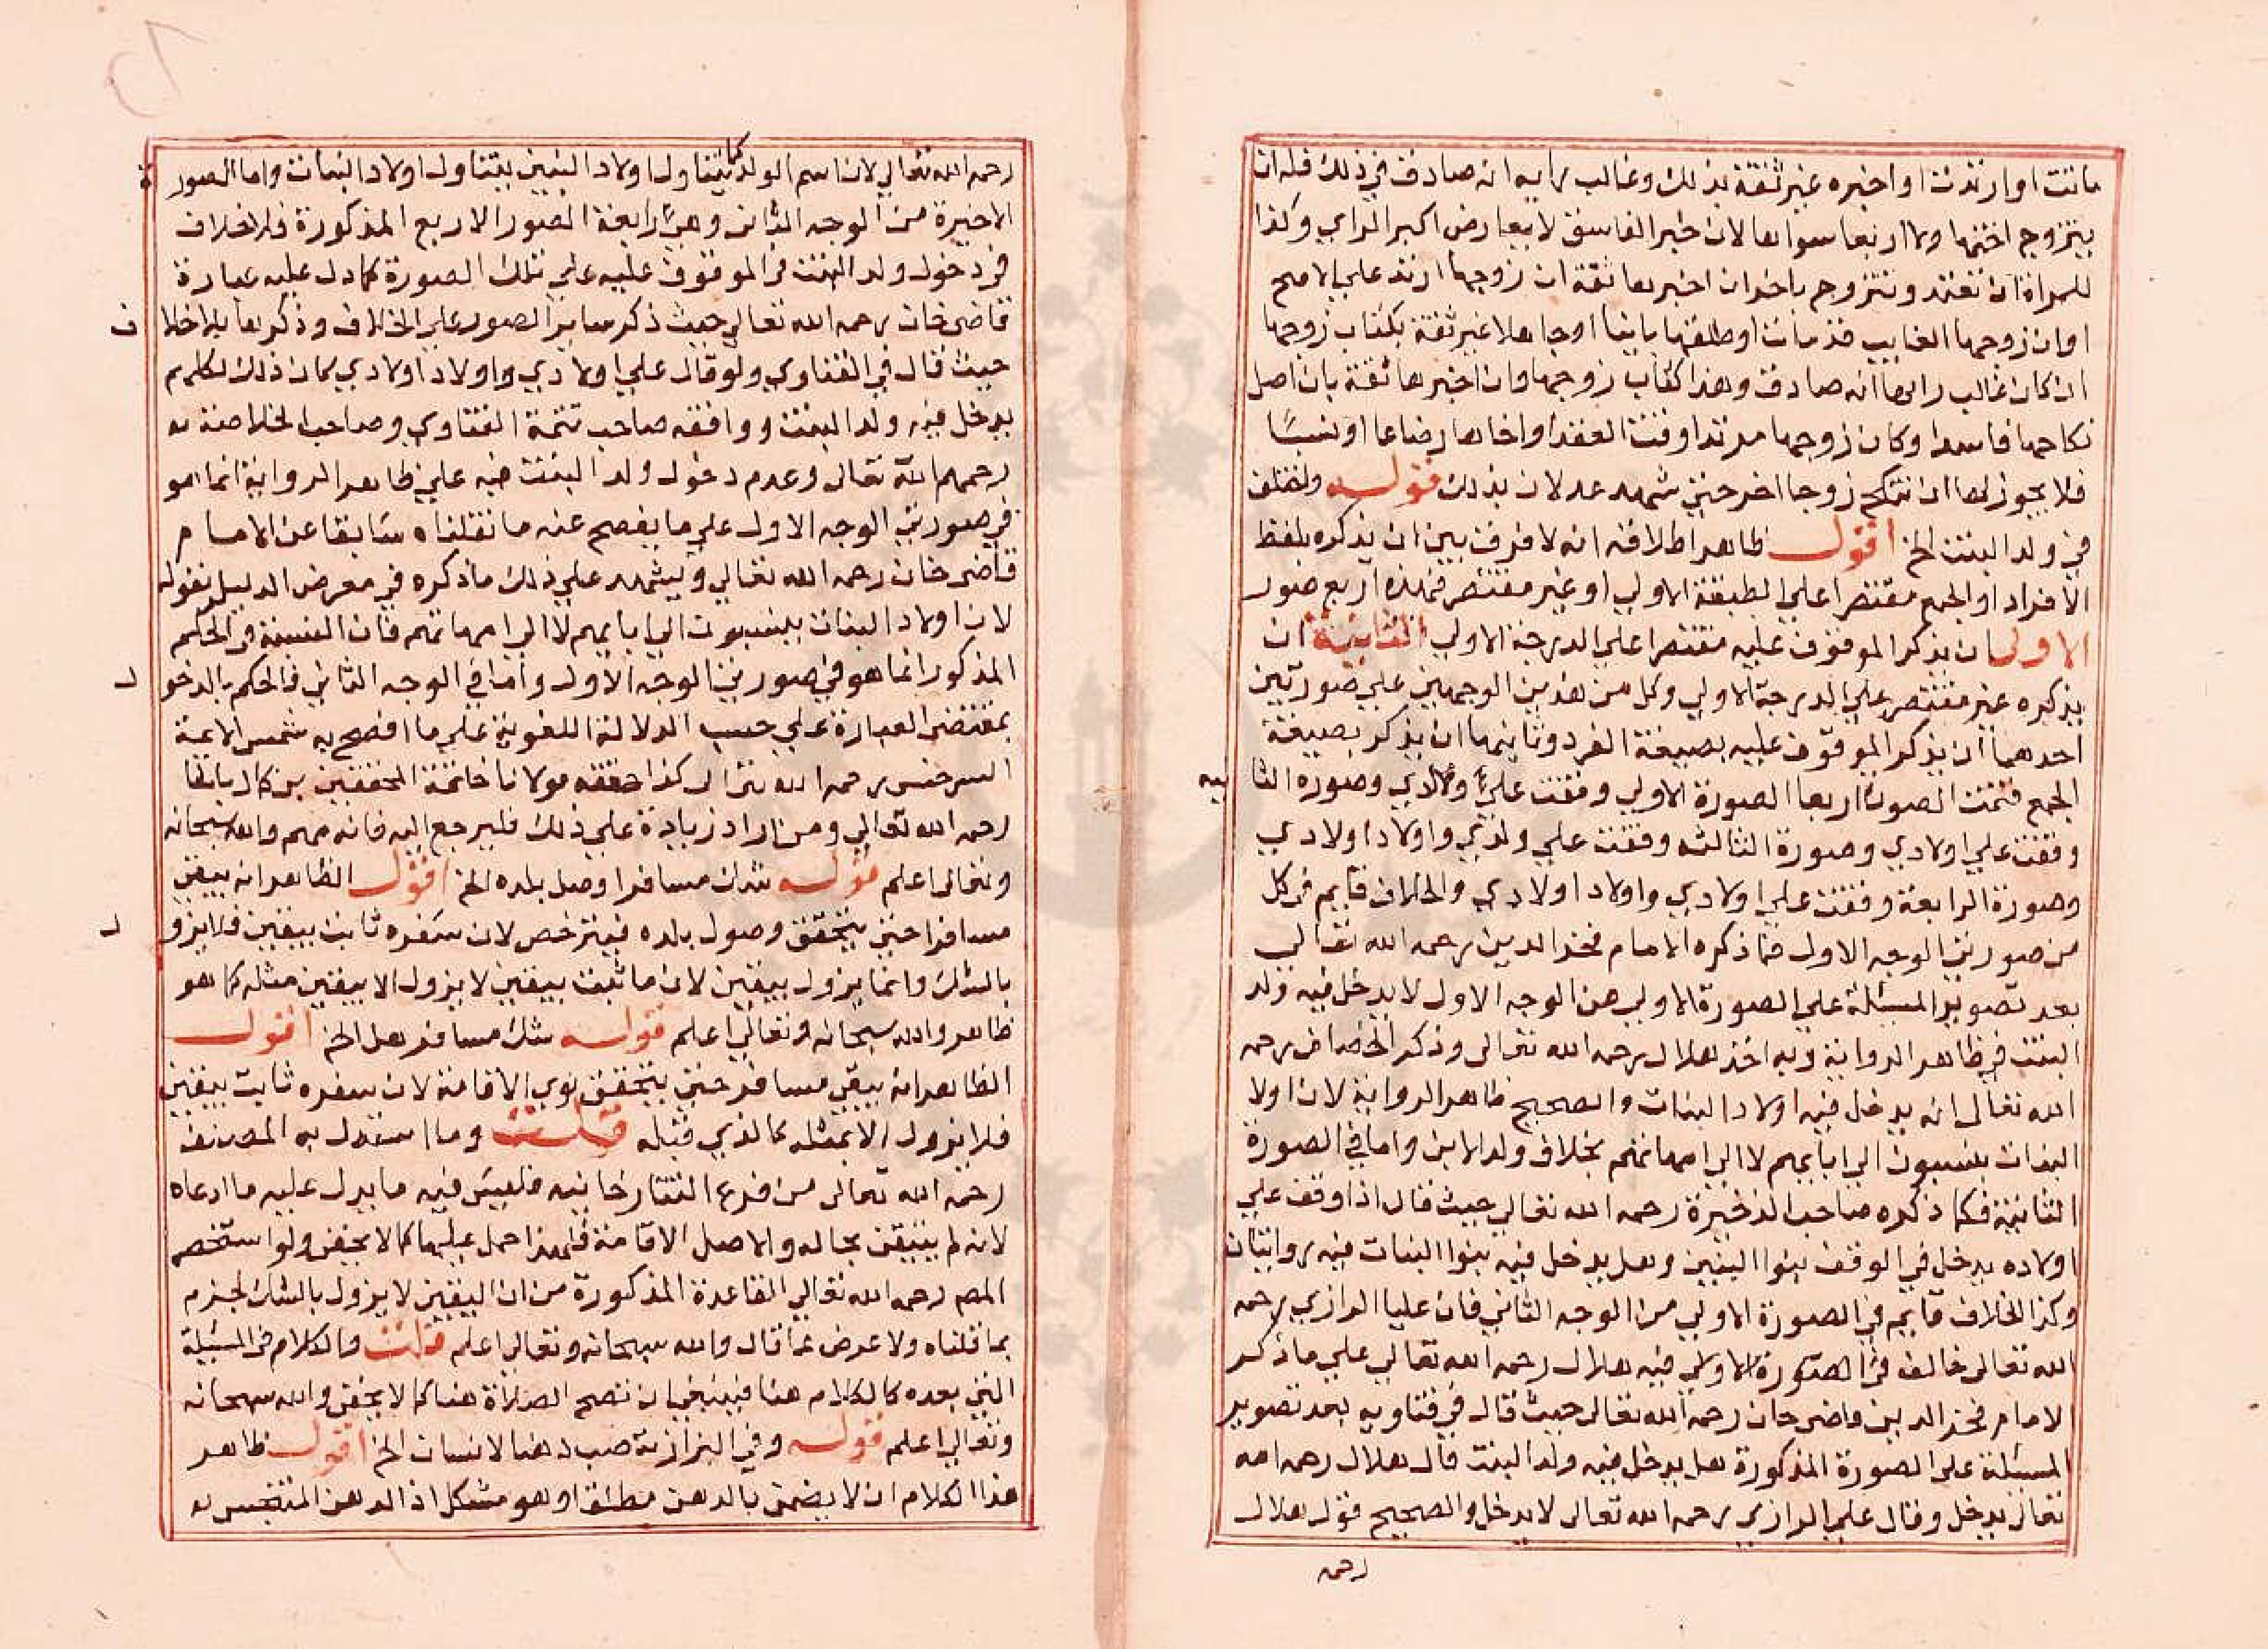 ماتت او ارتدت او اخبره غير ثقة بذلك وغالب رايه انه صادق في ذلك فله ان
يتزوج اختها ولا اربعا سواها لان خبر الفاسق لا يعارض اكبر الراي وكذا
للمراة ان تعتد وتتزوج باخر ان اخبرها ثقة ان زوجها ارتد علي الاصح
او ان زوجها الغايب قد مات او طلقها باينا او جاها غير ثقة بكتاب زوجها
ان كان غالب رايها انه صادق وهذا كتاب زوجها وان اخبرها ثقة بان اصل
نكاحها فاسد او كان زوجها مرتدا وقت العقد او اخاها رضاعا او نسبا
فلا يجوز لها ان تنكح زوجا اخر حتي شهد عدلان بذلك قوله واختلف
في ولد البنت الخ اقول ظاهر اطلاقه انه لا فرق بين ان يذكره بلفظ
الافراد او الجمع مقتصرا علي الطبقة الاولي او غير مقتصر فهذه اربع صور
الاولي ان يذكر الموقوف عليه مقتصرا علي الدرجة الاولي الثانية ان
يذكره غير مقتصر علي الدرجة الاولي وكل من هذين الوجهين علي صورتين
احدهما ان يذكر الموقوف عليه بصيغة الفرد وثانيهما ان يذكر بصيغة
الجمع فتمت الصور اربعا الصورة الاولي وقفت علي ولدي وصورة الثا
نيه
وقفت علي اولادي وصورة الثالثه وقفت علي ولدي واولاد اولادي
وصورة الرابعة وقفت علي اولادي واولاد اولادي والخلاف قايم في كل
من صورتي الوجه الاول فما ذكره الامام فخر الدين رحمه الله تعالي
بعد تصوير المسئلة علي الصورة الاولي من الوجه الاول لا يدخل فيه ولد
البنت في ظاهر الرواية وبه اخذ هلال رحمه الله تعالي وذكر الخصاف رحمه
الله تعالي انه يدخل فيه اولاد البنات والصحيح ظاهر الرواية لان اولا
البنات ينسبون الي ابايهم لا الي امهاتهم بخلاف ولد الابن واما في الصورة
الثانية فكما ذكره صاحب الذخيرة رحمه الله تعالي حيث قال اذا وقف علي
اولاده يدخل في الوقف بنوا البنين وهل يدخل فيه بنوا البنات فيه روايتان
وكذا الخلاف قايم في الصورة الاولي من الوجه الثاني فان عليا الرازي رحمه
الله تعالي خالف في الصورة الاولي فيه هلال رحمه الله تعالي علي ما ذكر
الامام فخر الدين قاضي خان رحمه الله تعالي حيث قال في فتاويه بعد تصوير
المسئلة علي الصورة المذكورة هل يدخل فيه ولد البنت قال هلال رحمه الله
تعالي يدخل وقال علي الرازي رحمه الله تعالي لا يدخل والصحيح قول هلال
رحمه
رحمه الله تعالي لان اسم الولد كما يتناول اولاد البنين يتناول اولاد البنات واما الصورة
الاخيرة من الوجه الثاني وهي رابعة الصور الاربع المذكورة فلا خلاف
في دخول ولد البنت في الموقوف عليه علي تلك الصورة كما دل عليه عبارة
قاضي خان رحمه الله تعالي حيث ذكر ساير الصور علي الخلاف وذكرها بلا خلاف
حيث قال في الفتاوي ولو قال علي اولادي واولاد اولادي كان ذلك لكلهم
يدخل فيه ولد البنت ووافقه صاحب تتمة الفتاوي وصاحب الخلاصة
رحمهم الله تعالي وعدم دخول ولد البنت فيه علي ظاهر الرواية انما هو
في صورتي الوجه الاول علي ما يفصح عنه ما نقلناه سابقا عن الامام
قاضي خان رحمه الله تعالي ويشهد علي ذلك ما ذكره في معرض الدليل بقوله
لان اولاد البنات ينسبون الي ابايهم لا الي امهاتهم فان النسبة في الحكم
المذكور انما هو في صورتي الوجه الاول واما في الوجه الثاني فالحكم بالدخول
بمقتضي العبارة علي حسب الدلالة اللغوية علي ما افصح به شمس الايمة
السرخسي رحمه الله تعالي كذا حققه مولانا خاتمة المحققين بن كمال باشا
رحمه الله تعالي ومن اراد زيادة علي ذلك فليرجع اليه فانه مهم والله سبحانه
وتعالي اعلم قوله شك مسافر اوصل بلده الخ اقول الظاهر انه يبقي
مسافرا حتي يتحقق وصول بلده فيترخص لان سفره ثابت بيقين فلا يزول
بالشك وانما يزول بيقين لان ما ثبت بيقين لا يزول الا بيقين مثله كما هو
ظاهر والله سبحانه وتعالي اعلم قوله شك مسافر هل الخ اقول
الظاهر انه يبقي مسافر حتي يتحقق نوي الاقامة لان سفره ثابت بيقين
فلا يزول الا بمثله كالذي قبله قلت وما استدل به المصنف
رحمه الله تعالي من فرع التتارخانيه فليس فيه ما يدل عليه ما ادعاه
لانه لم يتيقن بحاله والاصل الاقامة فلهذا حمل عليها كما لا يخفي ولو استحضر
المصم رحمه الله تعالي القاعدة المذكورة من ان اليقين لا يزول بالشك لجزم
بما قلناه ولا عرض عما قال والله سبحانه وتعالي اعلم قلت والكلام في المسئلة
التي بعده كالكلام هنا فينبغي ان تصح الصلاة هنا كما لا يخفي والله سبحانه
وتعالي اعلم قوله وفي البزازية صب دهنا لانسان الخ اقول ظاهر
هذا الكلام ان لا يضمن بالدهن مطلقا وهو مشكل اذ الدهن المتنجس